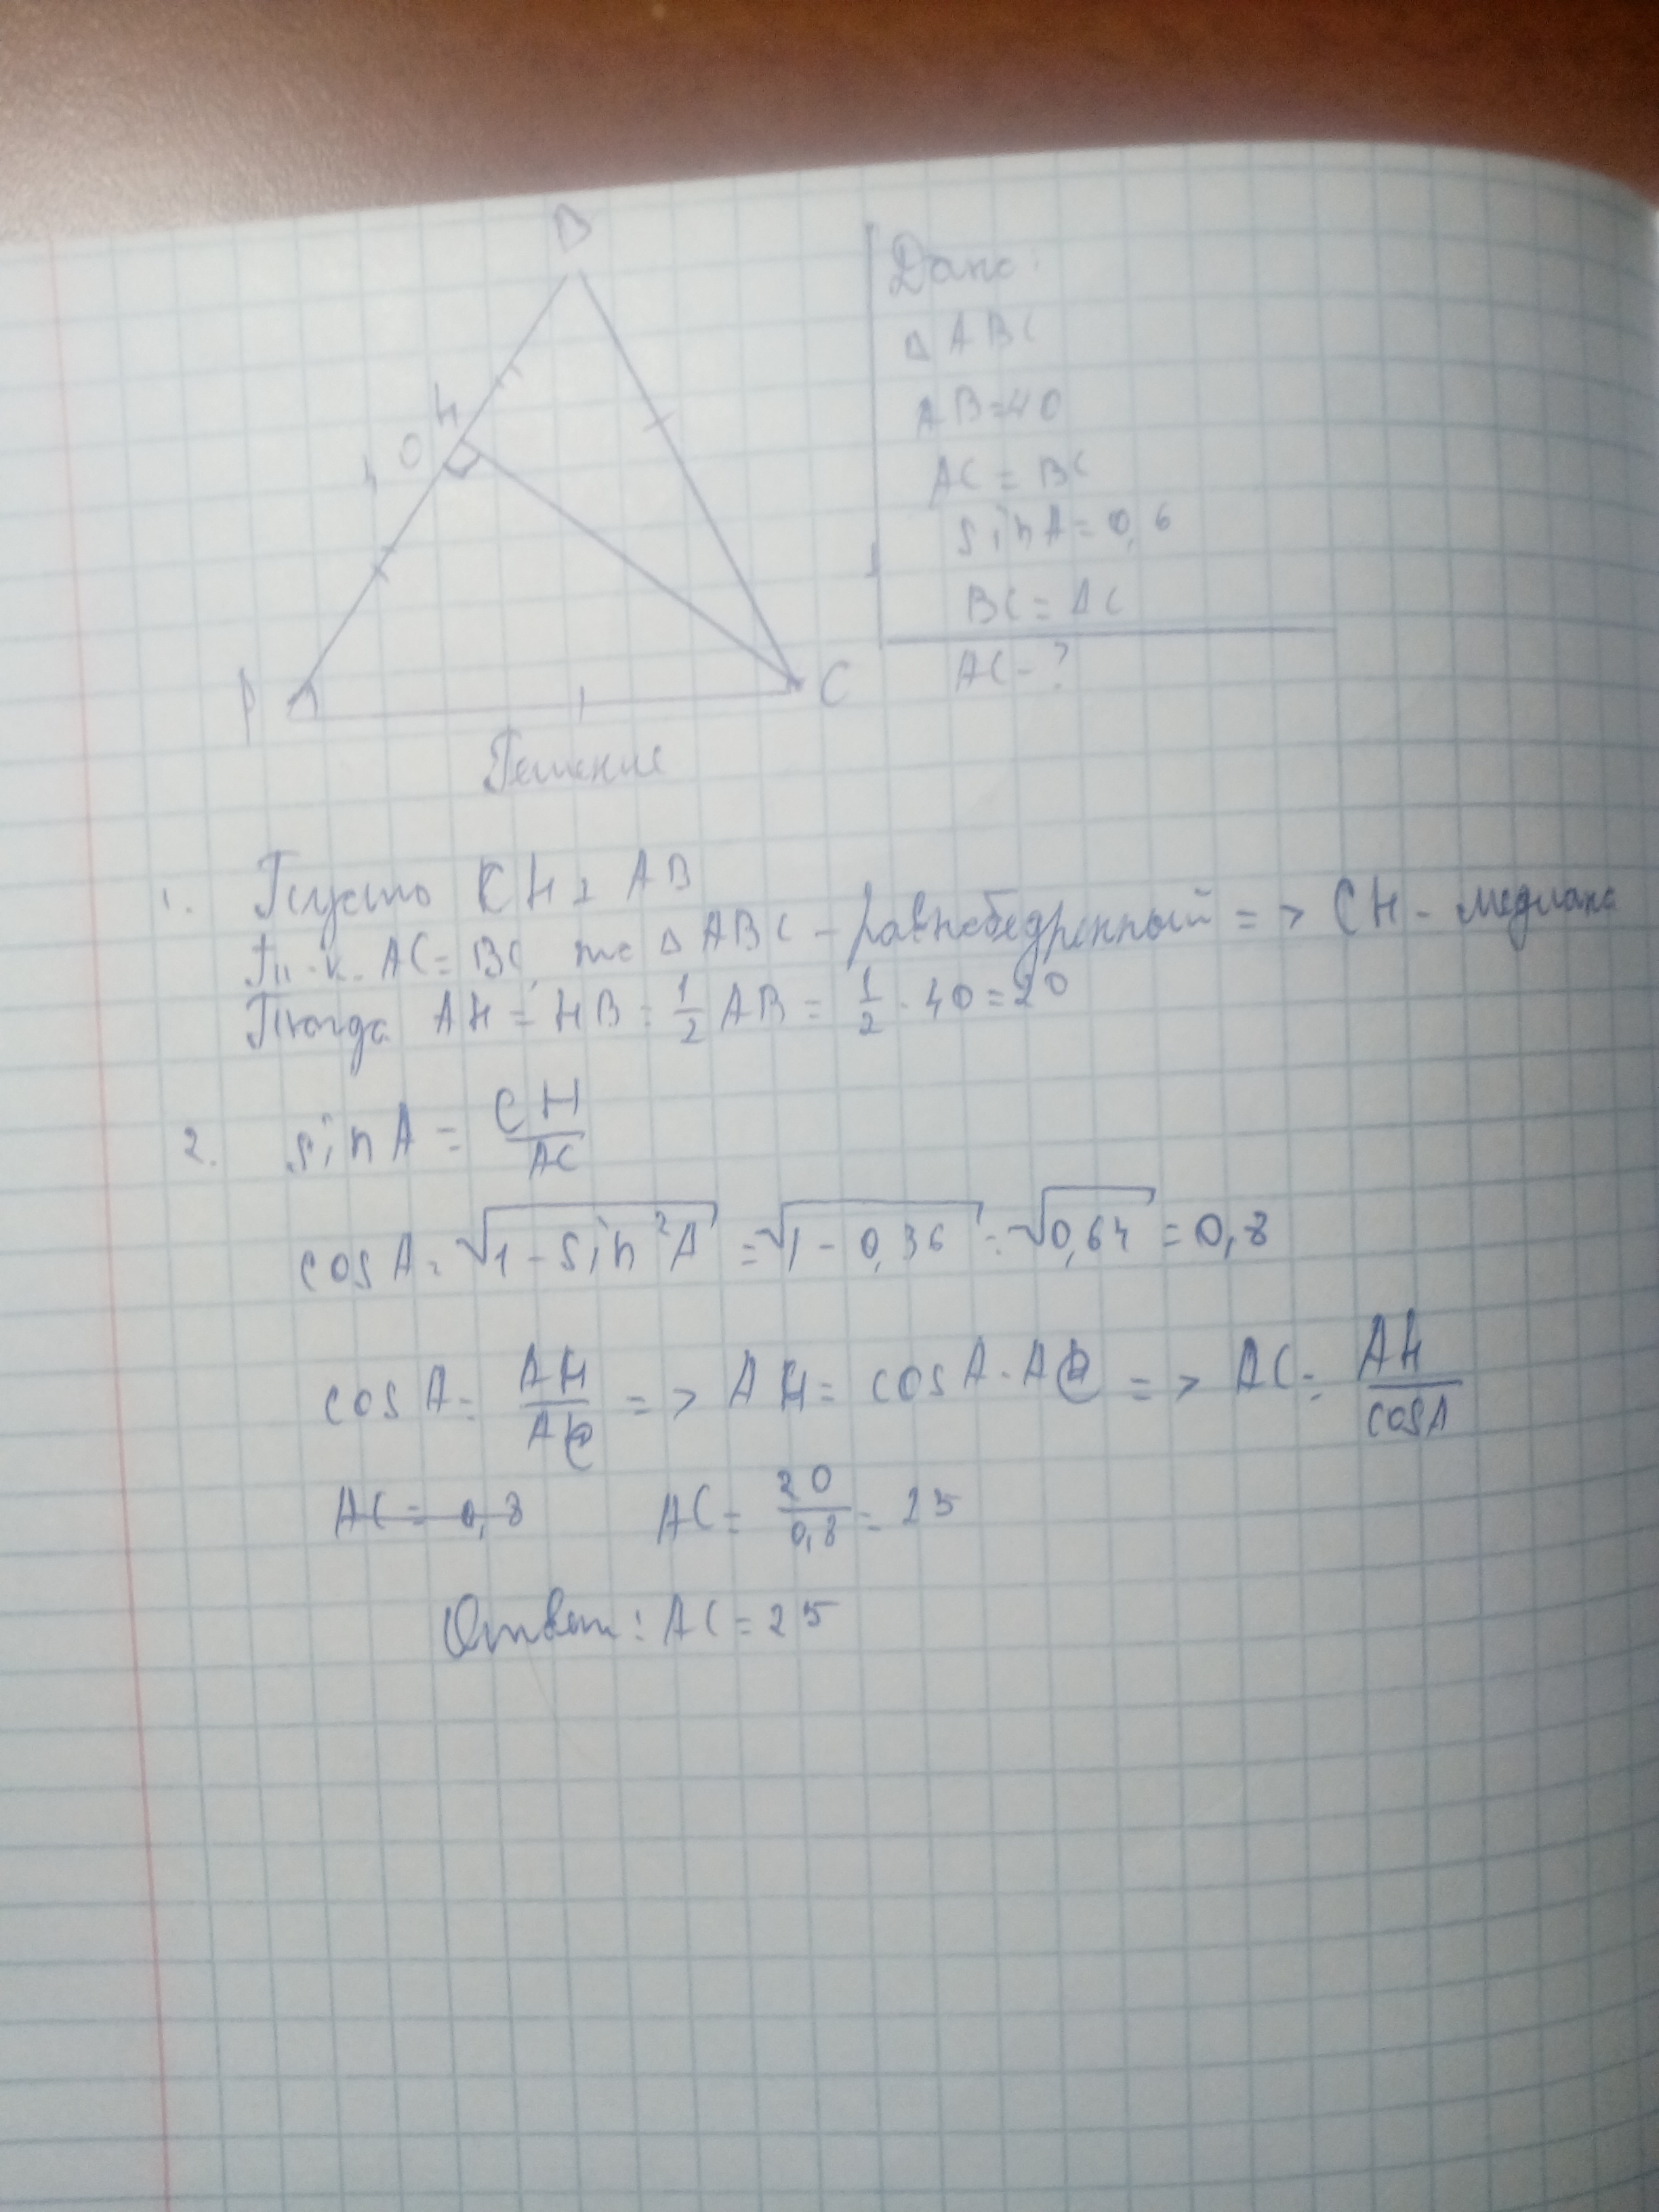 B
H
40
A
C
Дано:
△ ABC
AB=40
AC = BC
sin A = 0,6
BC = AC
AC - ?
Решение
1. Пусть CH ⊥ AB
Т.к. AC = BC, то △ ABC - равнобедренный => CH - медиана
Тогда AH = HB = 1/2 AB = 1/2 · 40 = 20
2. sin A = CH/AC
cos A = √(1 - sin²A) = √(1 - 0,36) = √0,64 = 0,8
cos A = AH/AC => AH = cos A · AC => AC = AH/cos A
AC = 0,8 AC = 20/0,8 = 25
Ответ: AC = 25